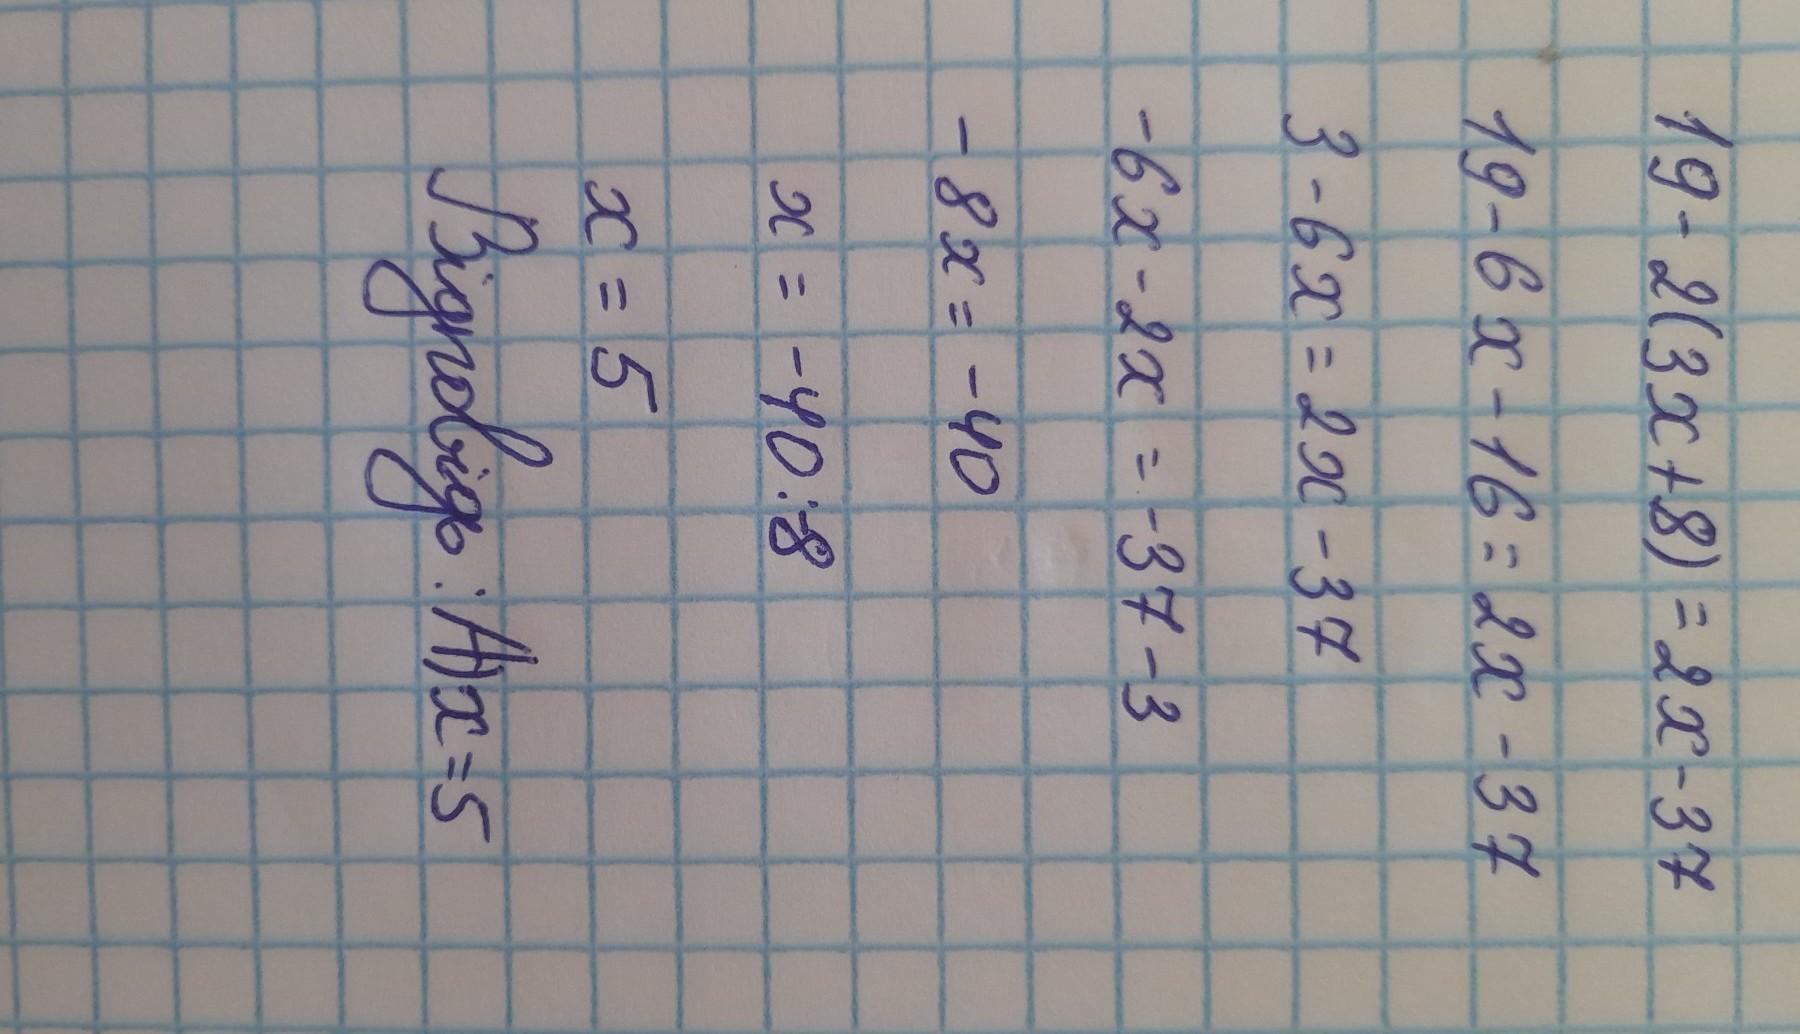 19-2(3x+8)=2x-37
19-6x-16=2x-37
3-6x=2x-37
-6x-2x=-37-3
-8x=-40
x=-40:8
x=5
Відповідь: А)x=5